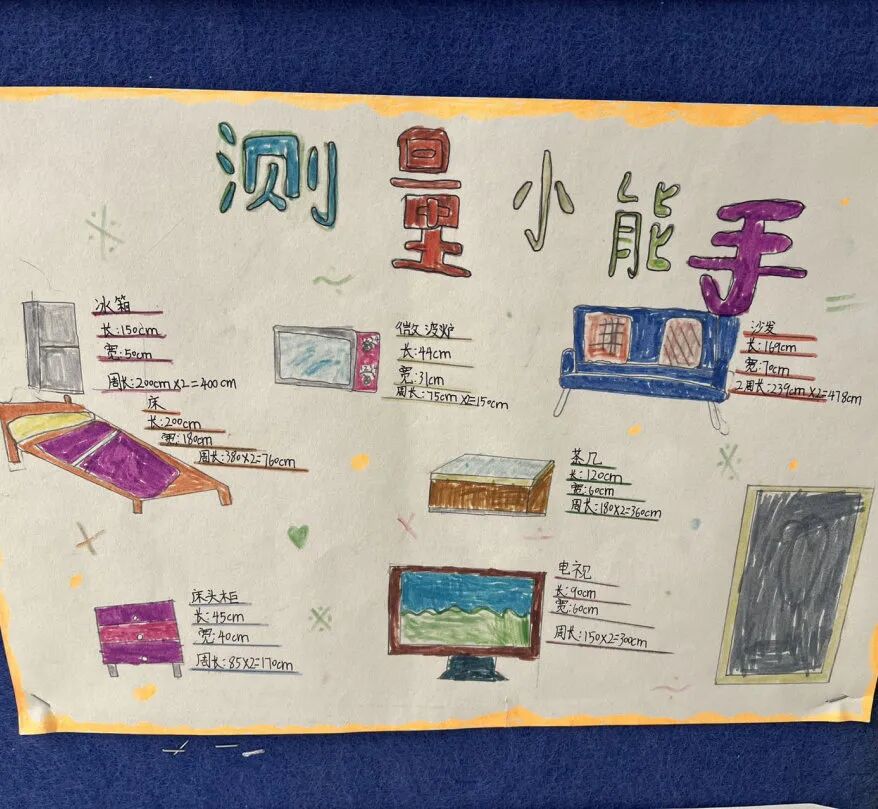 测量小能手
冰箱
长:150cm
宽:50cm
周长:200cm×2=400cm
床
长:200cm
宽:180cm
周长:380×2=760cm
微波炉
长:44cm
宽:31cm
周长:75cm×2=150cm
沙发
长:169cm
宽:70cm
2周长:239cm×2=478cm
茶几
长:120cm
宽:60cm
周长:180×2=360cm
床头柜
长:45cm
宽:40cm
周长:85×2=170cm
电视
长:90cm
宽:60cm
周长:150×2=300cm